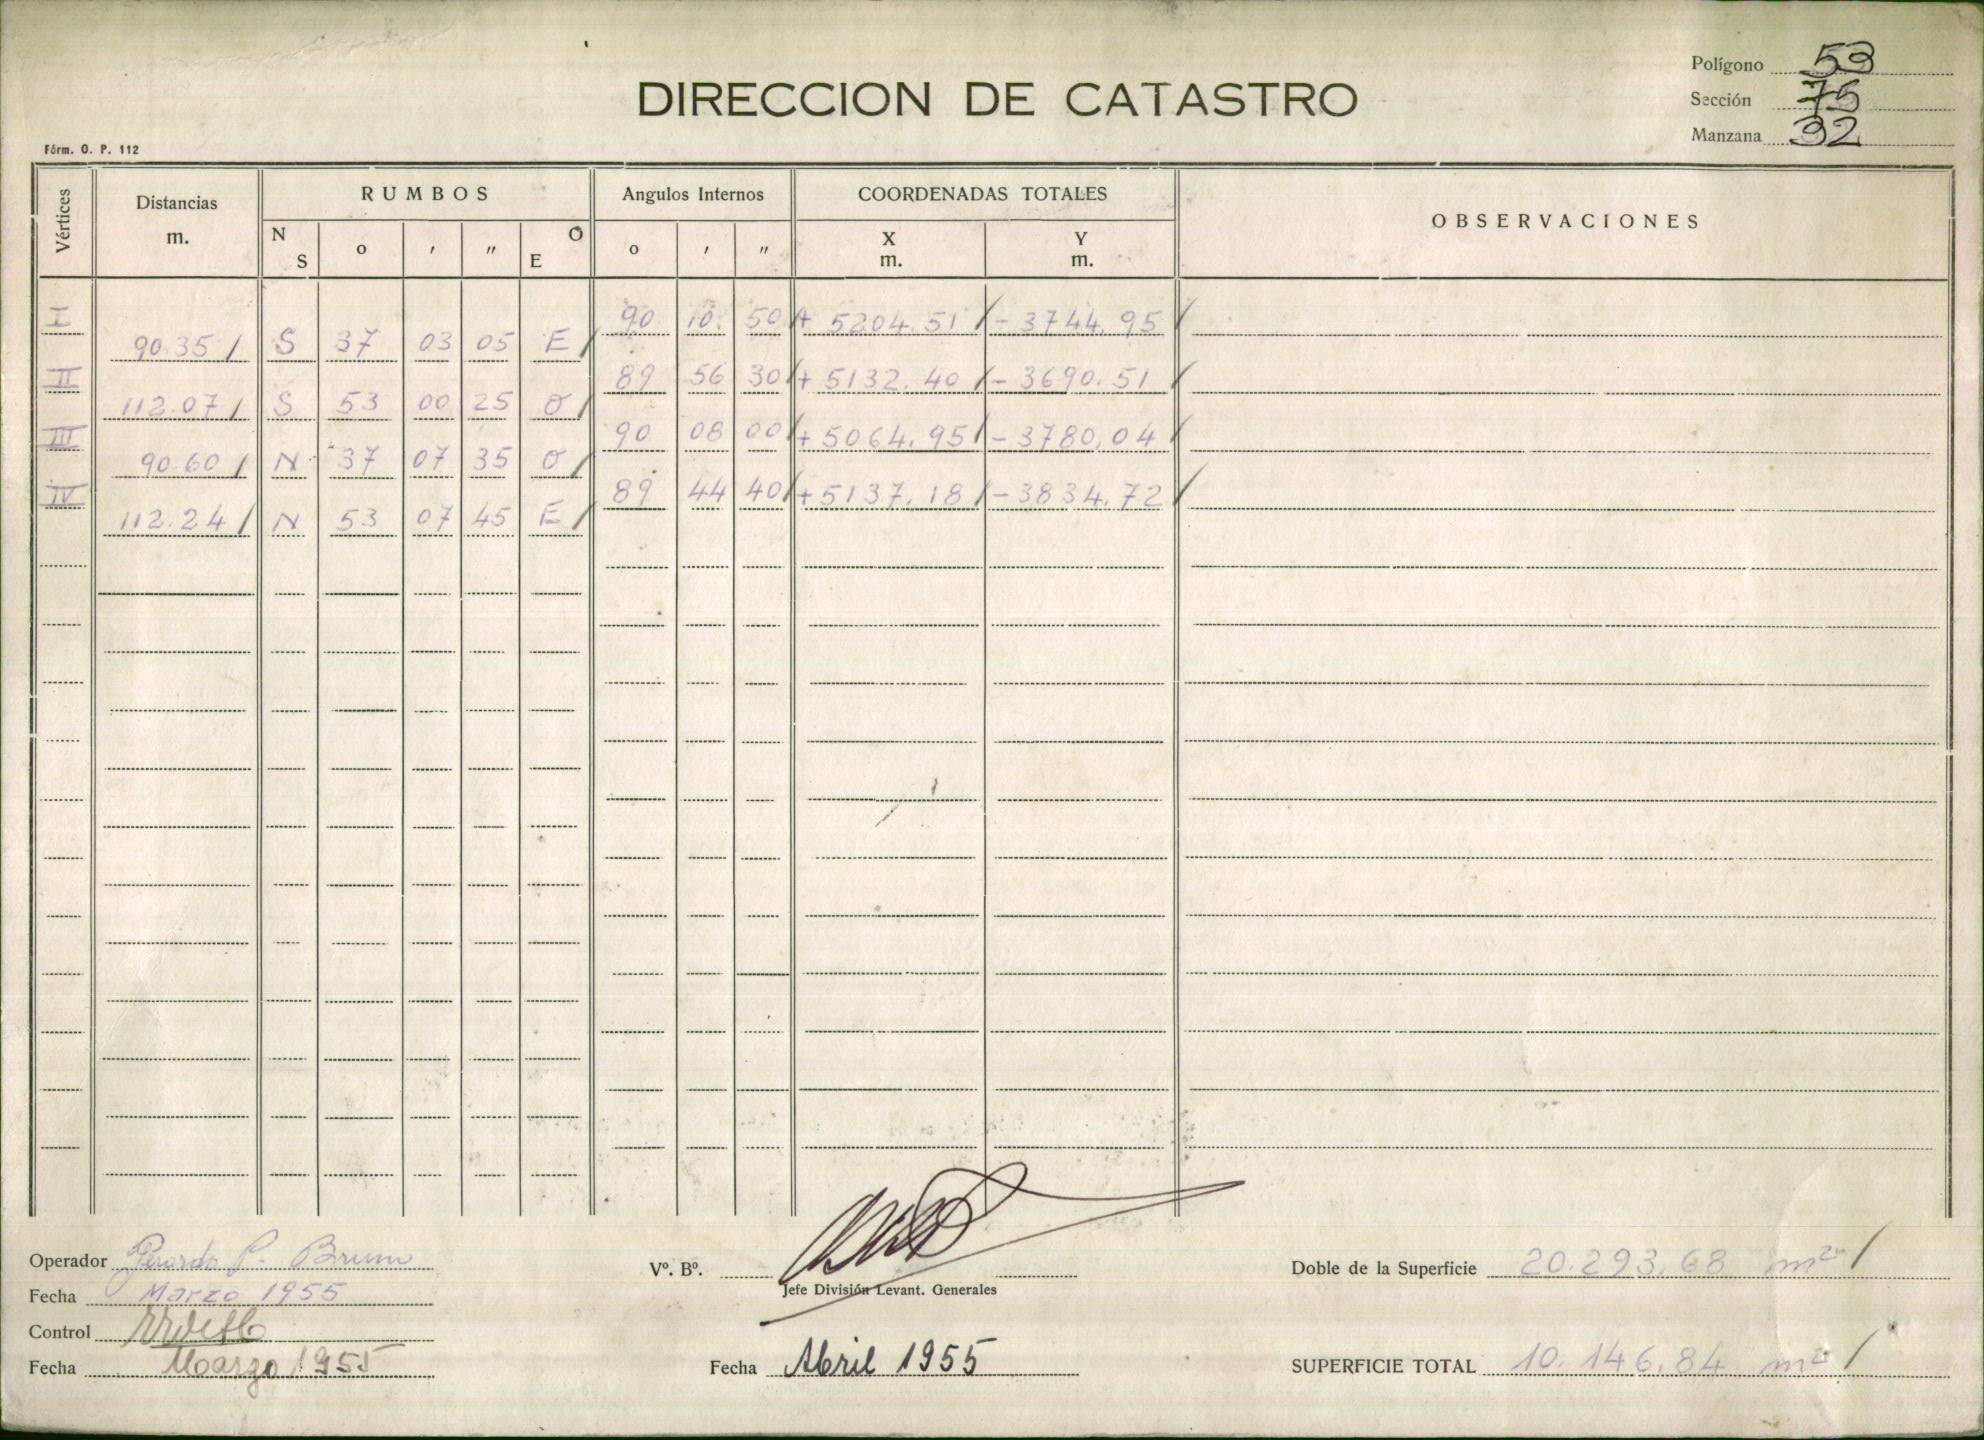 Polígono 53
DIRECCION DE CATASTRO
Sección 75
Manzana 32
Fórm. O. P. 112
Vértices Distancias m. RUMBOS Angulos Internos COORDENADAS TOTALES OBSERVACIONES
N S o ' " O E o ' " X m. Y m.
I 90 10 50 + 5204.51 - 3744.95
90.35 S 37 03 05 E
II 89 56 30 + 5132.40 - 3690.51
112.07 S 53 00 25 O
III 90 08 00 + 5064.95 - 3780,04
90.60 N 37 07 35 O
IV 89 44 40 + 5137.18 - 3834.72
112.24 N 53 07 45 E
Operador P. Bruno
Vº. Bº.
Doble de la Superficie 20.293,68 m2
Jefe División Levant. Generales
Fecha Marzo 1955
Control
Fecha Marzo 1955
Fecha Abril 1955
SUPERFICIE TOTAL 10.146,84 m2